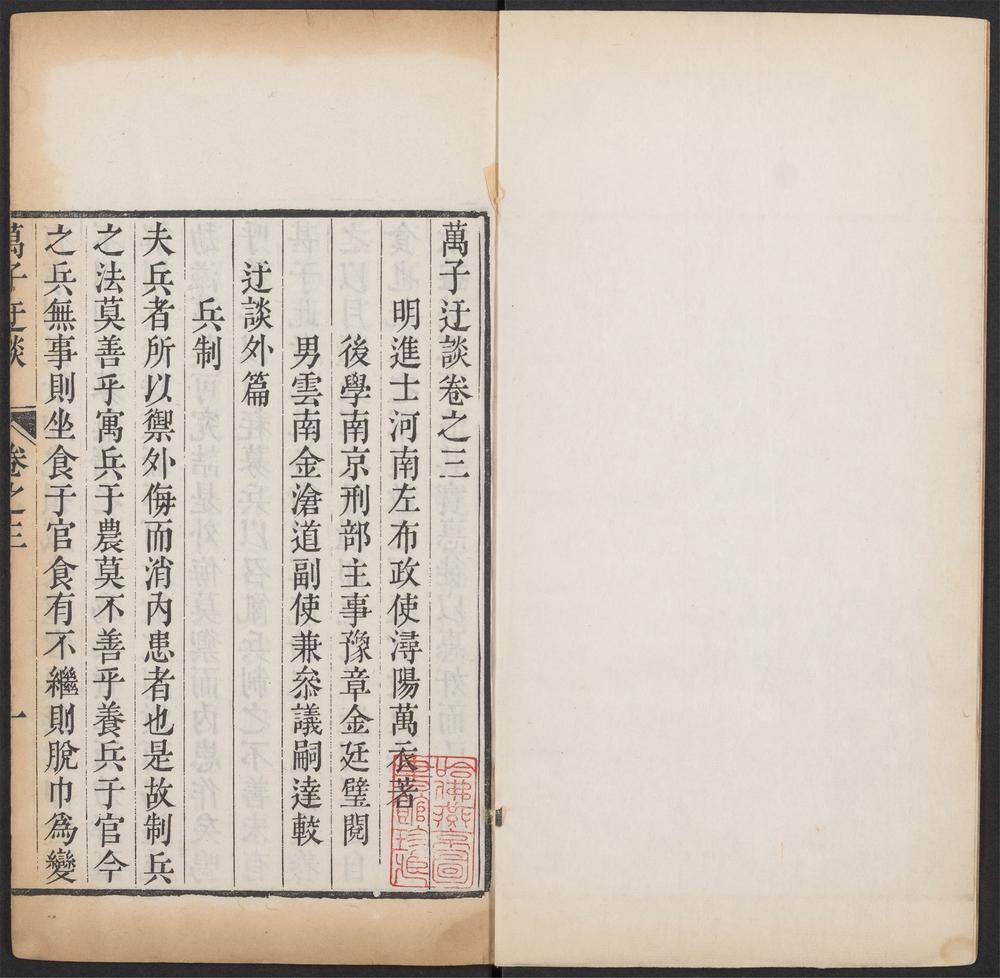 萬子迂談卷之三
明進士河南左布政使潯陽萬衣著
後學南京刑部主事豫章金廷璧閱
男雲南金滄道副使兼叅議嗣達較
迂談外篇
兵制
夫兵者所以禦外侮而消內患者也是故制兵
之法莫善乎寓兵于農莫不善乎養兵于官今
之兵無事則坐食于官食有不繼則脫巾為變
萬子迂談
卷之三
一
哈佛燕京圖
書館珍藏